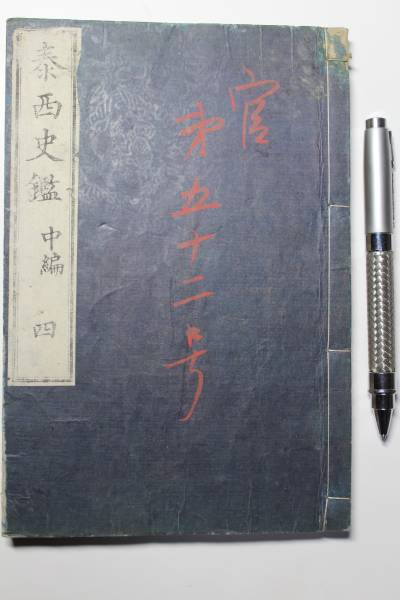 官
第五十二号
泰西史鑑 中編 四